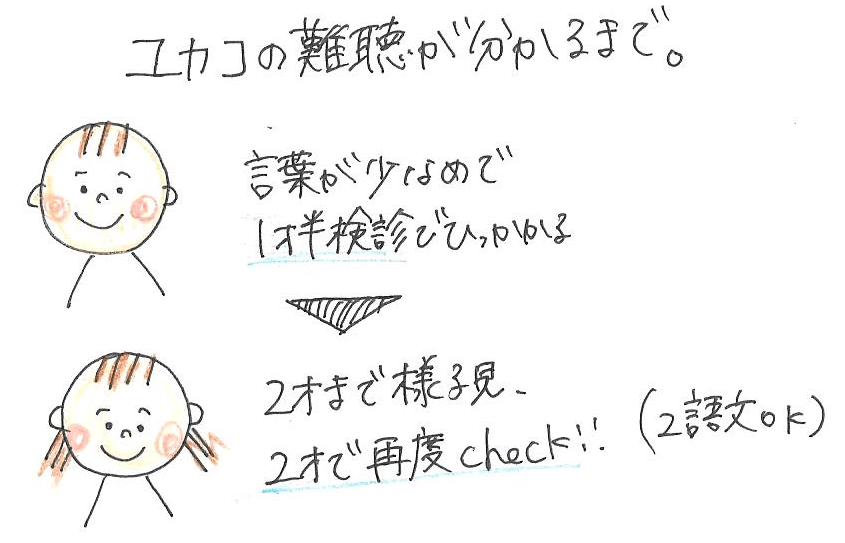 ユカコの難聴が分かるまで。
言葉が少なめで
1才半検診でひっかかる
2才まで様子見、
2才で再度check!! (2語文OK)